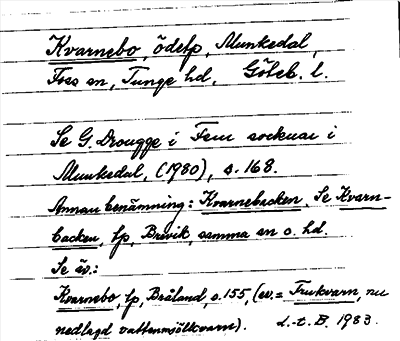 Kvarnebo, ödetp, Munkedal,
Foss sn, Tunge hd, Göteb. l.
Se G. Drougge i Fem socknar i
Munkedal, (1980), s. 168.
Annan benämning: Kvarnebacken, Se Kvarn-
backen, tp, Brevik, samma sn o. hd.
Se äv.:
Kvarnebo, tp, Bråland, s. 155, (ev. = Trukvarn, nu
nedlagd vattenmjölkvarn). d.-t. B. 1983.